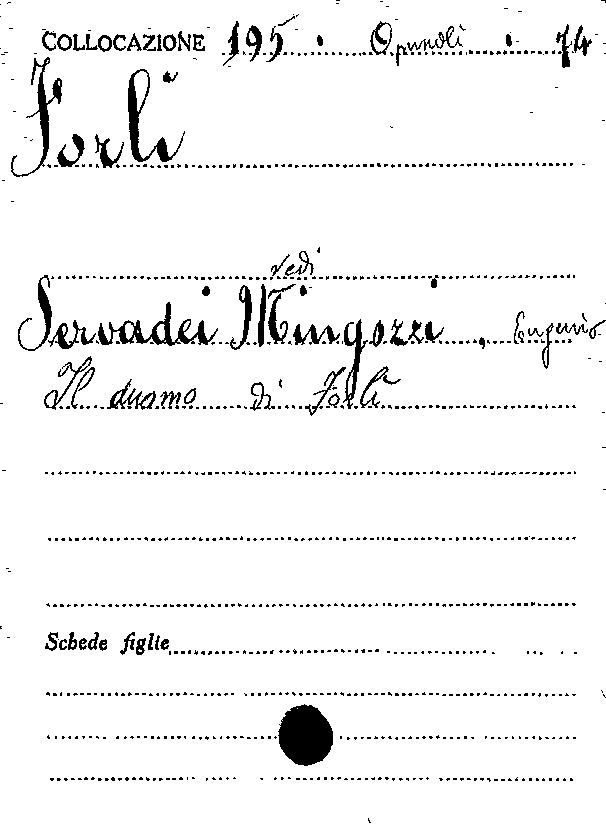 COLLOCAZIONE 195 . Opuscoli . 74
Forlì
vedi
Servadei Mingozzi, Eugenio
Il duomo di Forlì
Schede figlie